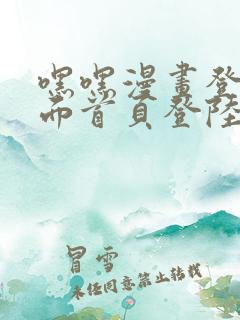 嘿嘿漫畫登
而首頁登陸
冒雪
未經同意禁止转载